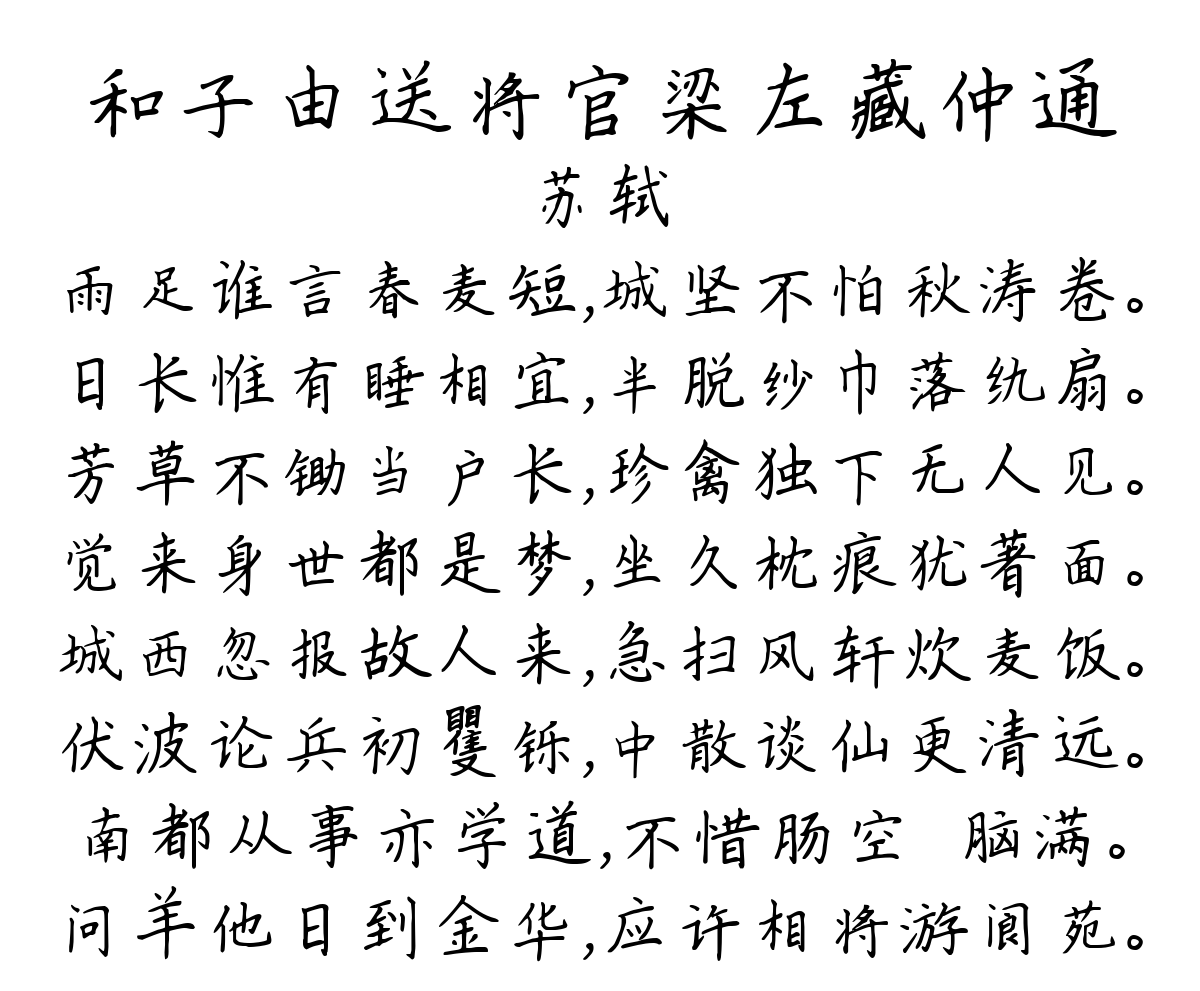 和子由送将官梁左藏仲通
苏轼
雨足谁言春麦短,城坚不怕秋涛卷。
日长惟有睡相宜,半脱纱巾落纨扇。
芳草不锄当户长,珍禽独下无人见。
觉来身世都是梦,坐久枕痕犹著面。
城西忽报故人来,急扫风轩炊麦饭。
伏波论兵初矍铄,中散谈仙更清远。
南都从事亦学道,不惜肠空 脑满。
问羊他日到金华,应许相将游阆苑。